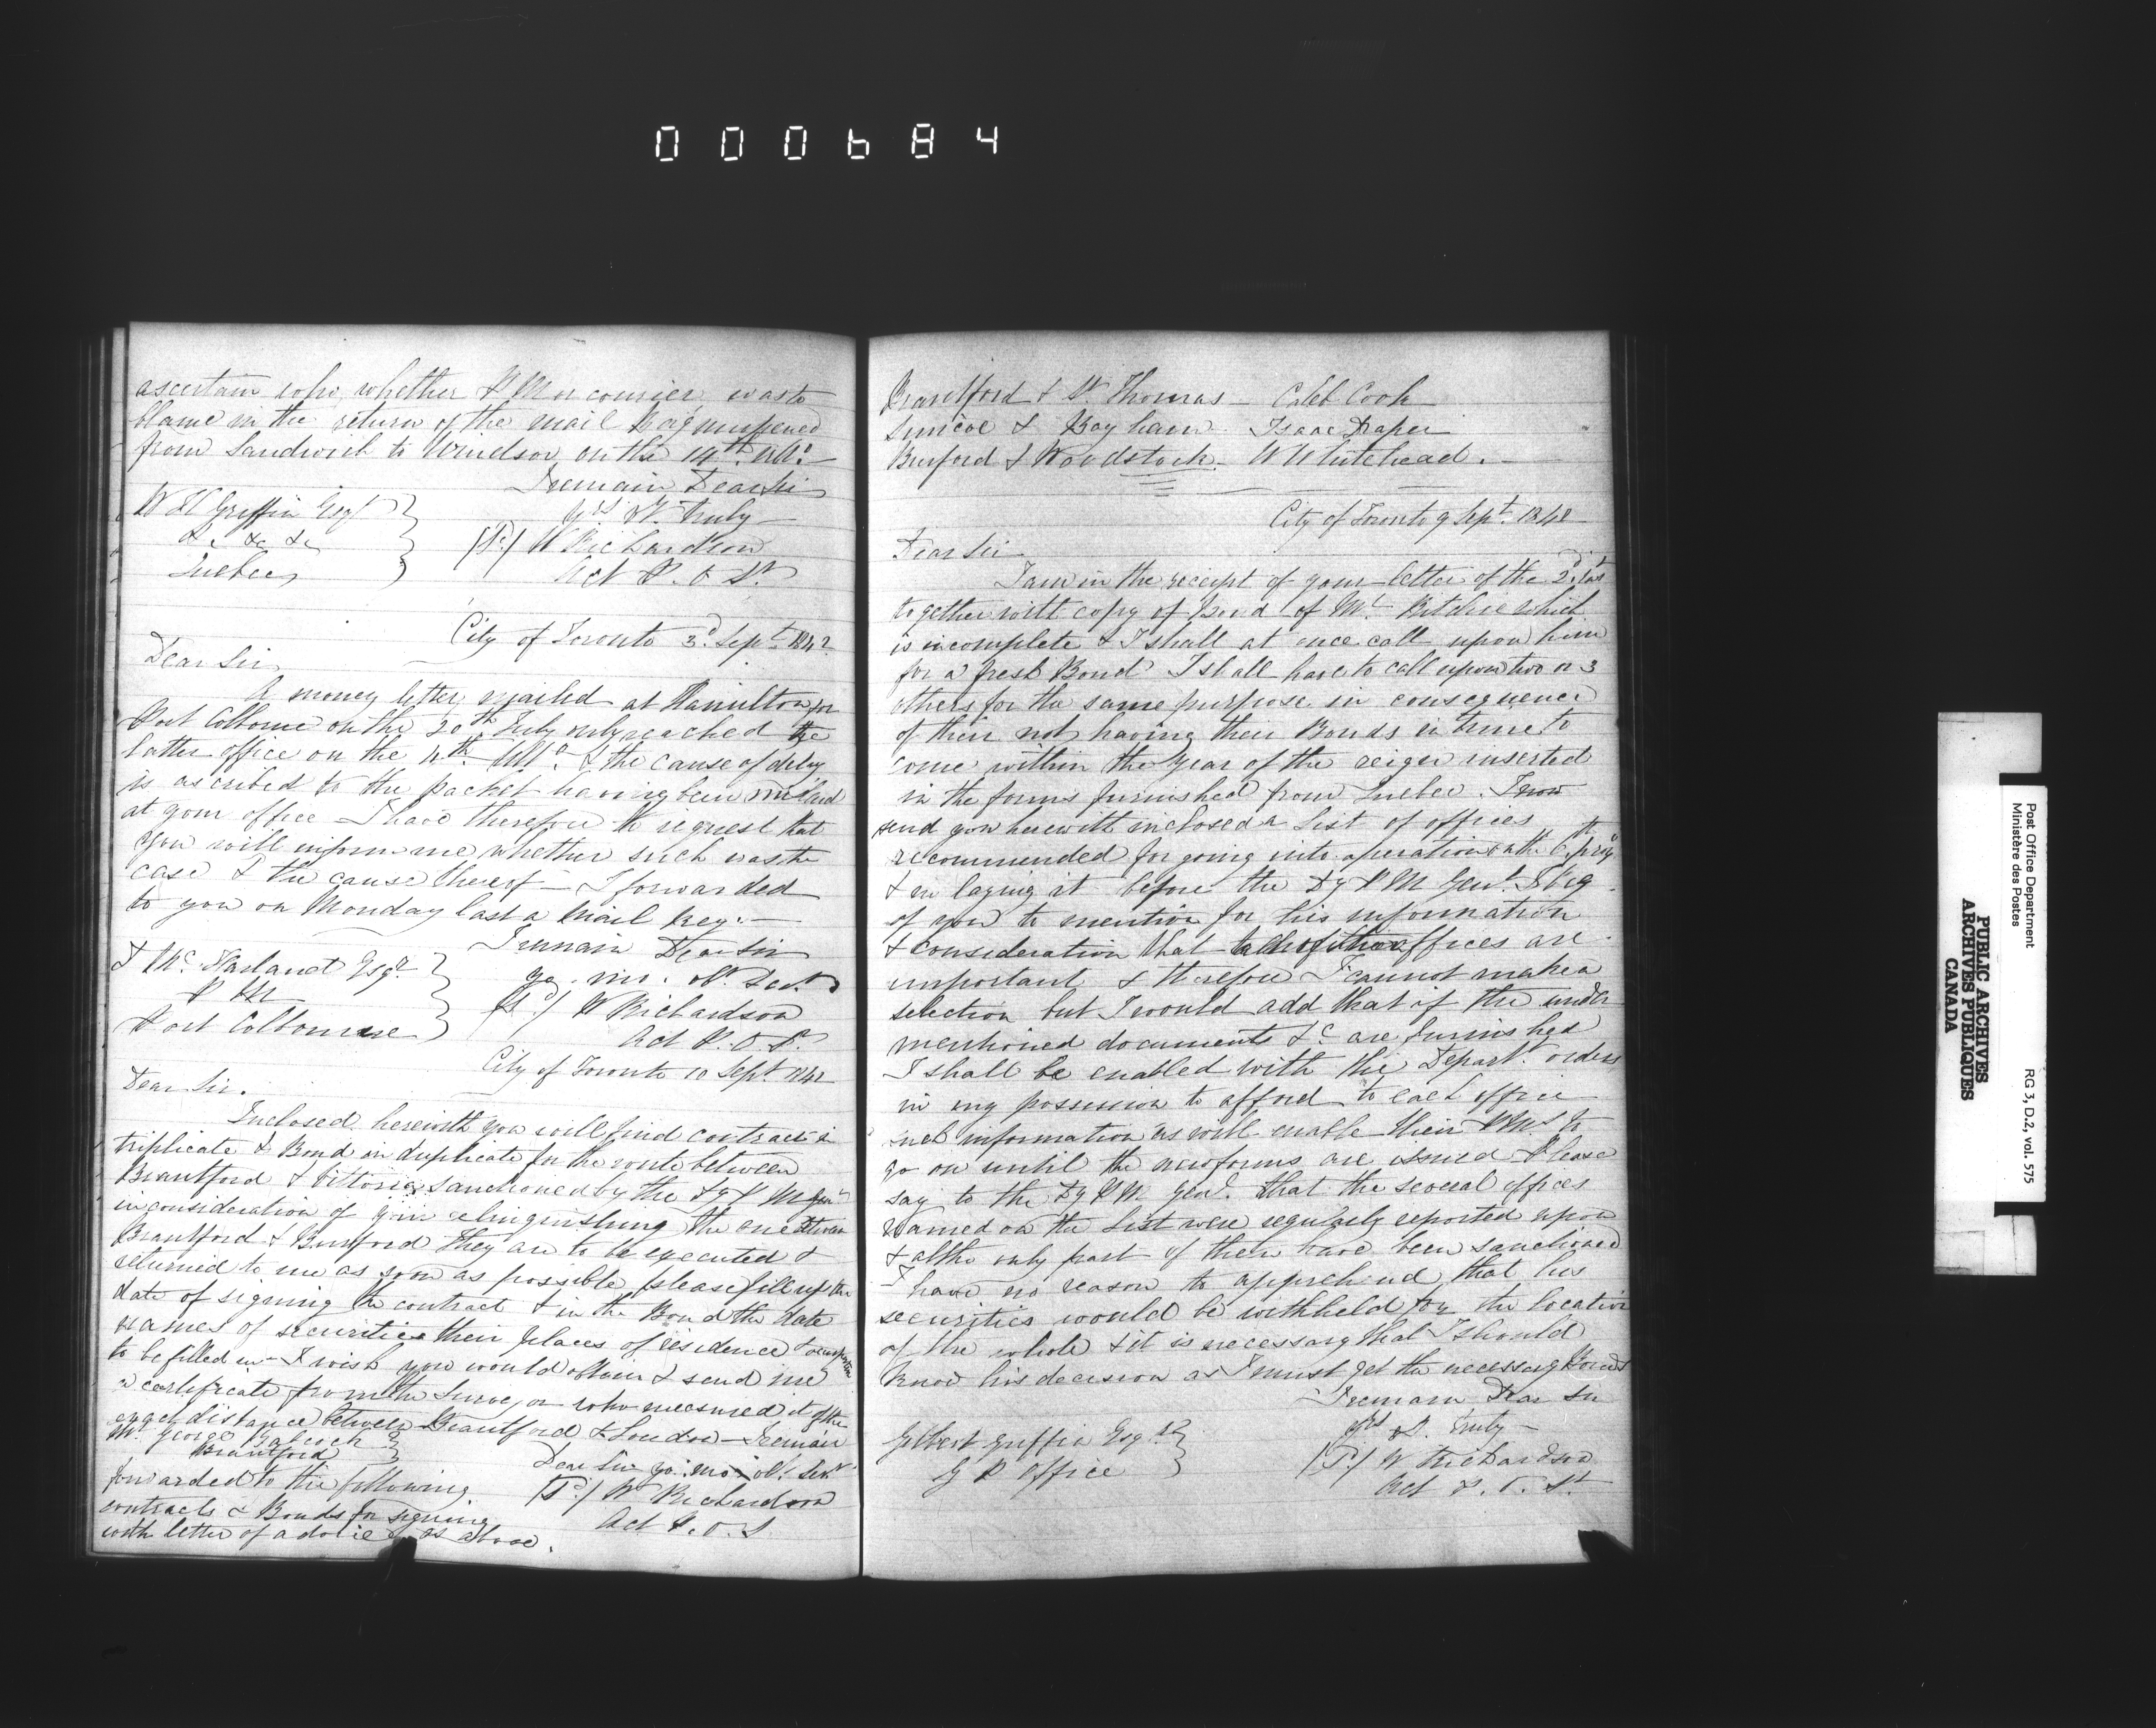 000684
ascertain who, whether P M or courier was to
blame in the return of the mail Bag missent
from Sandwich to Windsor on the 14th ulto
I remain Dear Sir
W H Griffin Esqr
&c &c &c
Quebec
Yrs Vy. truly
W Richardson
Act P. O. Sr
City of Toronto 3d Sept 1842
Dear Sir
A money letter mailed at Hamilton for
Port Colborne on the 20th July only reached the
latter office on the 4th Ulto. & the cause of delay
is ascribed to the packet having been
at your office I have therefore to request that
you will inform me whether such was the
case & the cause thereof — I forwarded
to you on Monday last a Mail Key. —
I remain Dear Sir
yr. mo. ob. Sert
Mc. Farland Esqr
P M
Port Colborne
W Richardson
Act P. O. Sr.
City of Toronto 10 Sept 1842
Dear Sir.
Inclosed herewith you will find contract in
triplicate & Bond in duplicate for the route between
Brantford & Vittoria sanctioned by the Dy P M Genl
in consideration of your relinquishing the one between
Brantford & Burford they are to be executed &
returned to me as soon as possible please fill up the
date of signing the contract & in the Bond the date
names of securities their places of residence & occupation
to be filled in — I wish you would obtain & send me
a certificate from the Surveyor who measured it of the
exact distance between Brantford & London — I remain
Mr George Babcock
Brantford
Dear Sir yr. mo. ob. Sert
W Richardson
Act P. O. S.
forwarded to the following
contracts & Bonds for signing
with letter of advice as above.
Brantford & St. Thomas — Caleb Cook
Simcoe & Bayham — Isaac Draper
Burford & Woodstock — W Whitehead. —
City of Toronto 9 Sept. 1842
Dear Sir
I am in the receipt of your letter of the 2d. Inst
together with copy of Bond of Mr. Ritchie which
is incomplete & I shall at once call upon him
for a fresh Bond I shall have to call upon two or 3
others for the same purpose in consequence
of their not having their Bonds in time to
come within the year of the reign inserted
in the forms furnished from Quebec. I now
send you herewith inclosed a list of offices
recommended for going into operation on the 6th
& on laying it before the Dy P M Genl. I beg
of you to mention for his information
& consideration that offices are
important & therefore I cannot make a
selection but I would add that if the under
mentioned documents &c are furnished
I shall be enabled with the Depart. orders
in my possession to afford to each office
such information as will enable their P Ms to
go on until the new forms are issued Please
say to the Dy P M Genl. that the several offices
named on the List were regularly reported upon
& altho only part of them have been sanctioned
I have no reason to apprehend that his
securities would be withheld for the location
of the whole & it is necessary that I should
know his decision as I must get the necessary Bonds
I remain Dear Sir
Yrs Vy. truly —
Gilbert Griffin Esqr
G P Office
W Richardson
Act P. O. Sr.
Post Office Department
Ministère des Postes
RG 3, D.2, vol. 575
PUBLIC ARCHIVES
ARCHIVES PUBLIQUES
CANADA